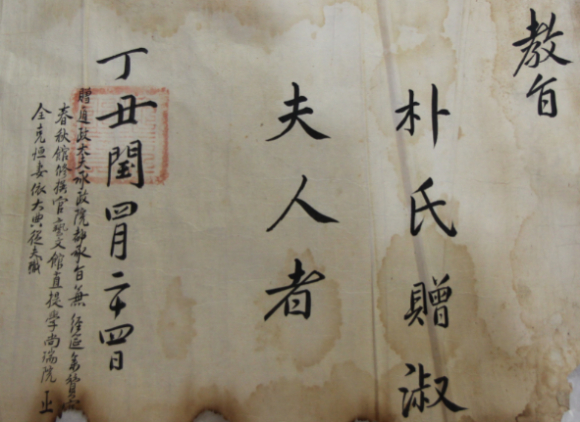 教旨
朴氏贈淑
夫人者
丁丑閏四月二十四日
贈通政大夫承政院都承旨兼 經筵參贊
春秋館修撰官藝文館直提學尚瑞院正
全克恒妻依大典從夫職